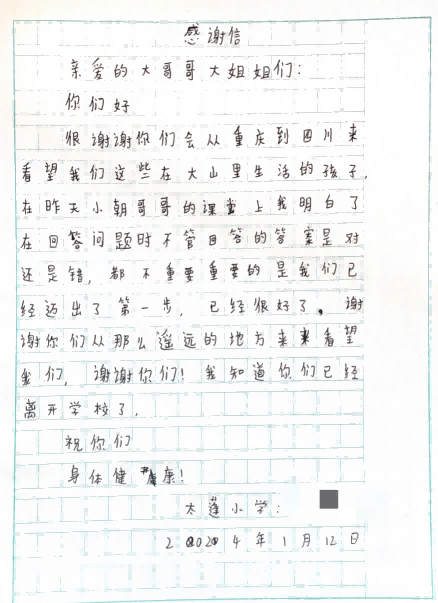 感谢信
亲爱的大哥哥大姐姐们:
你们好
很谢谢你们会从重庆到四川来
看望我们这些在大山里生活的孩子,
在昨天小朝哥哥的课堂上我明白了
在回答问题时不管回答的答案是对
还是错,都不重要重要的是我们已
经迈出了第一步,已经很好了。谢
谢你们从那么遥远的地方来来看望
我们,谢谢你们!我知道你们已经
离开学校了.
祝你们
身体健康!
太蓬小学:
2024年1月12日